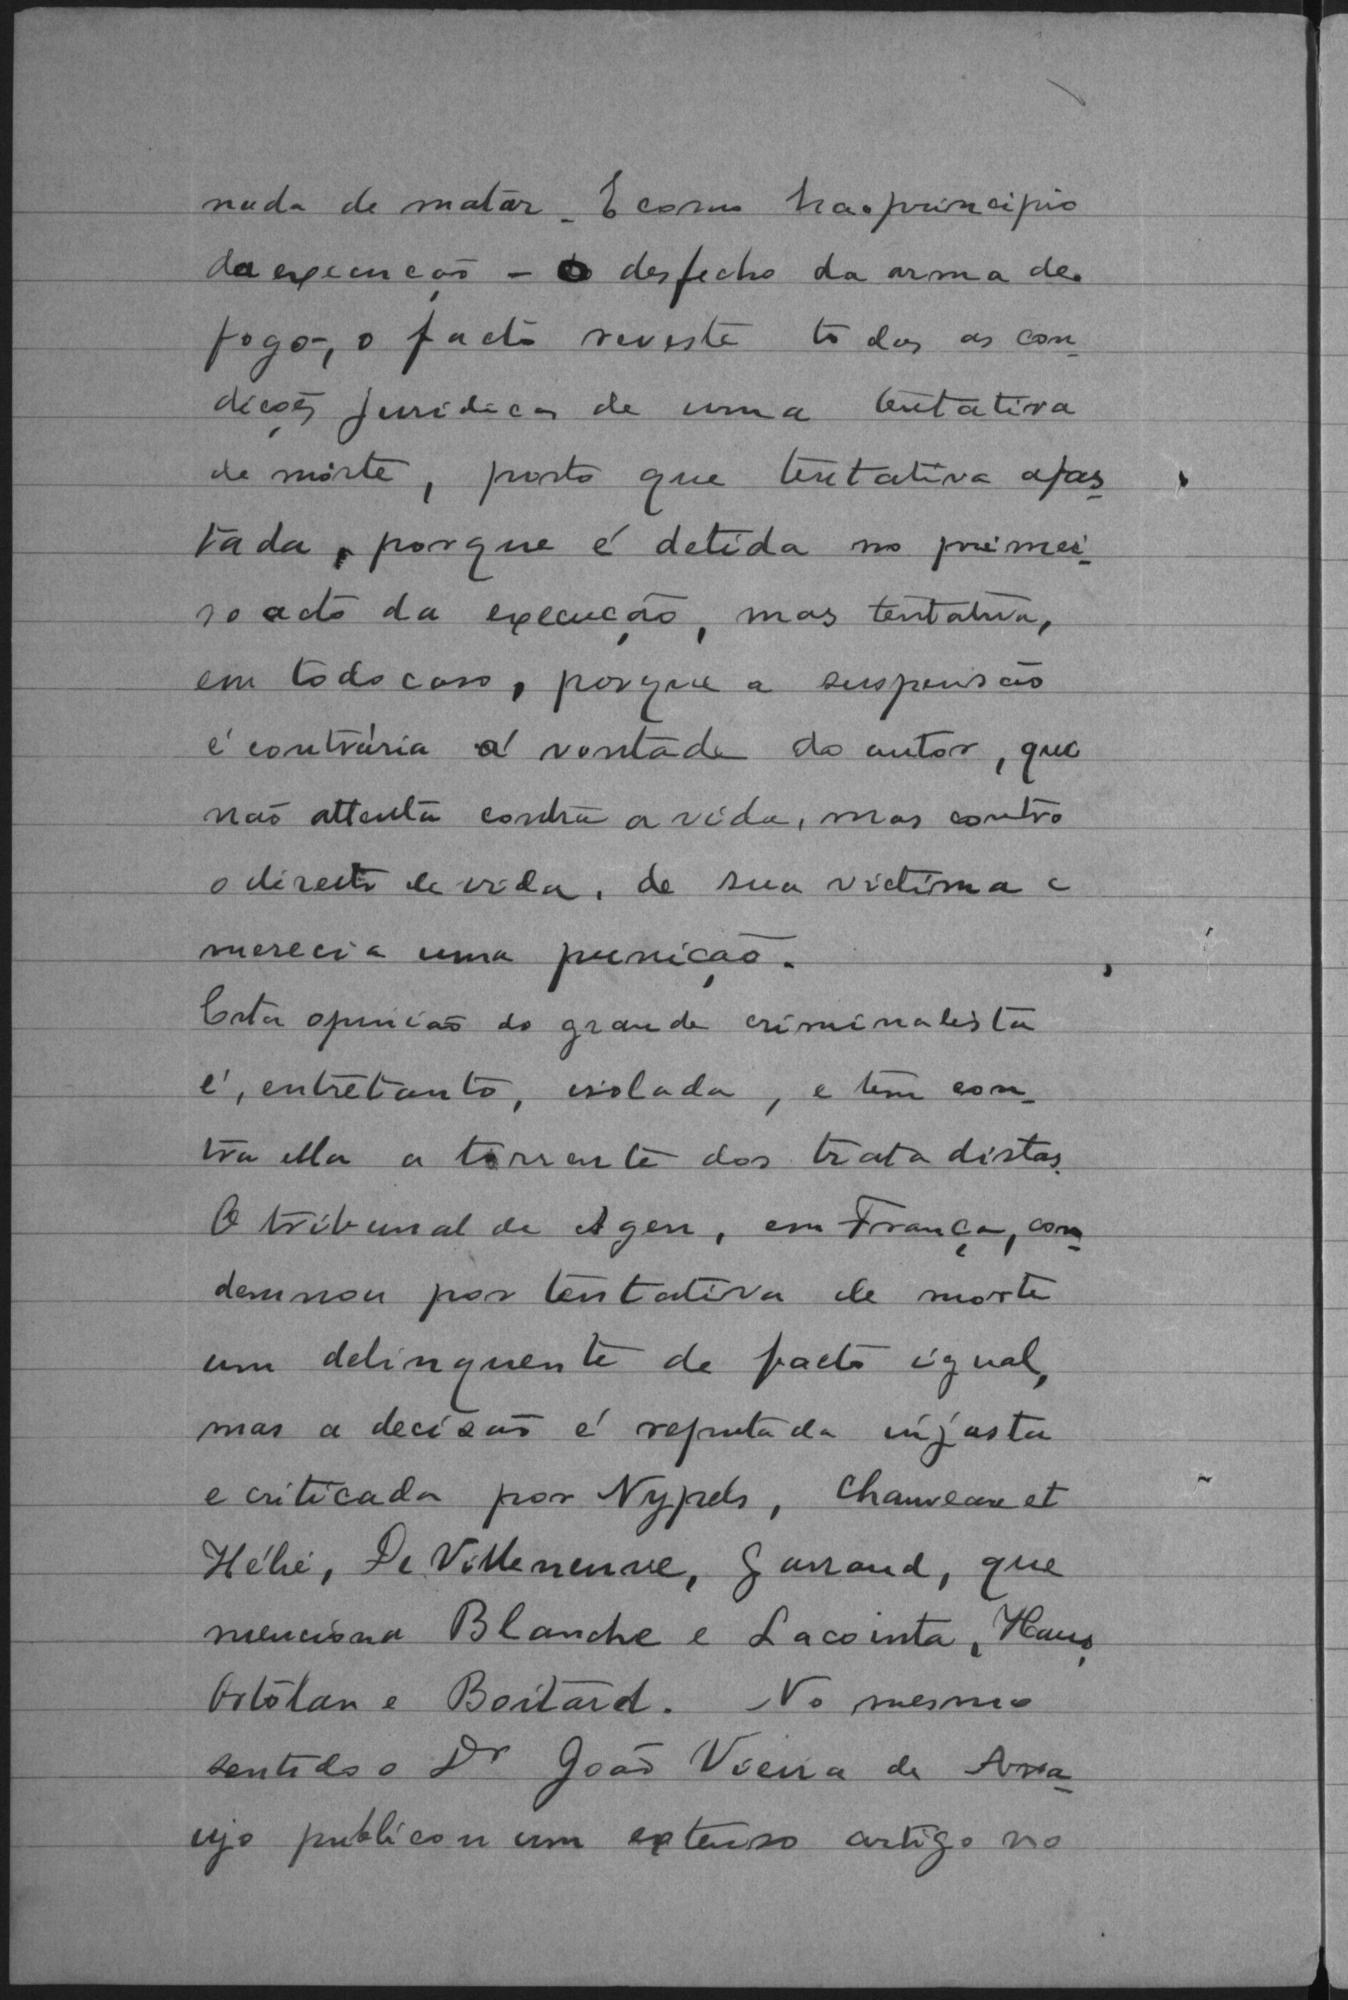 nada de matar. E como ha o principio
da execucção – o desfecho da arma de
fogo –, o facto reveste todas as con-
dições juridicas de uma tentativa
de morte, posto que tentativa afas-
tada, porque é detida no primei-
ro acto da execução, mas tentativa,
em todo caso, porque a suspensão
é contrária á vontade do autor, que
não attenta contra a vida, mas contra
o direito de vida, de sua victima e
merecia uma punição.
Esta opinião do grande criminalista
é, entretanto, isolada, e tem con-
tra ella a torrente dos tratadistas.
O tribunal de Agen, em França, con-
demnou por tentativa de morte
um delinquente de facto igual,
mas a decisão é reputada injusta
e criticada por Nypels, Chauveau et
Hélie, De Villeneuve, Garraud, que
menciona Blanche e Lacointa, Haus,
Ortolan e Boitard. No mesmo
sentido o Dr João Vieira de Ara-
ujo publicou um extenso artigo no